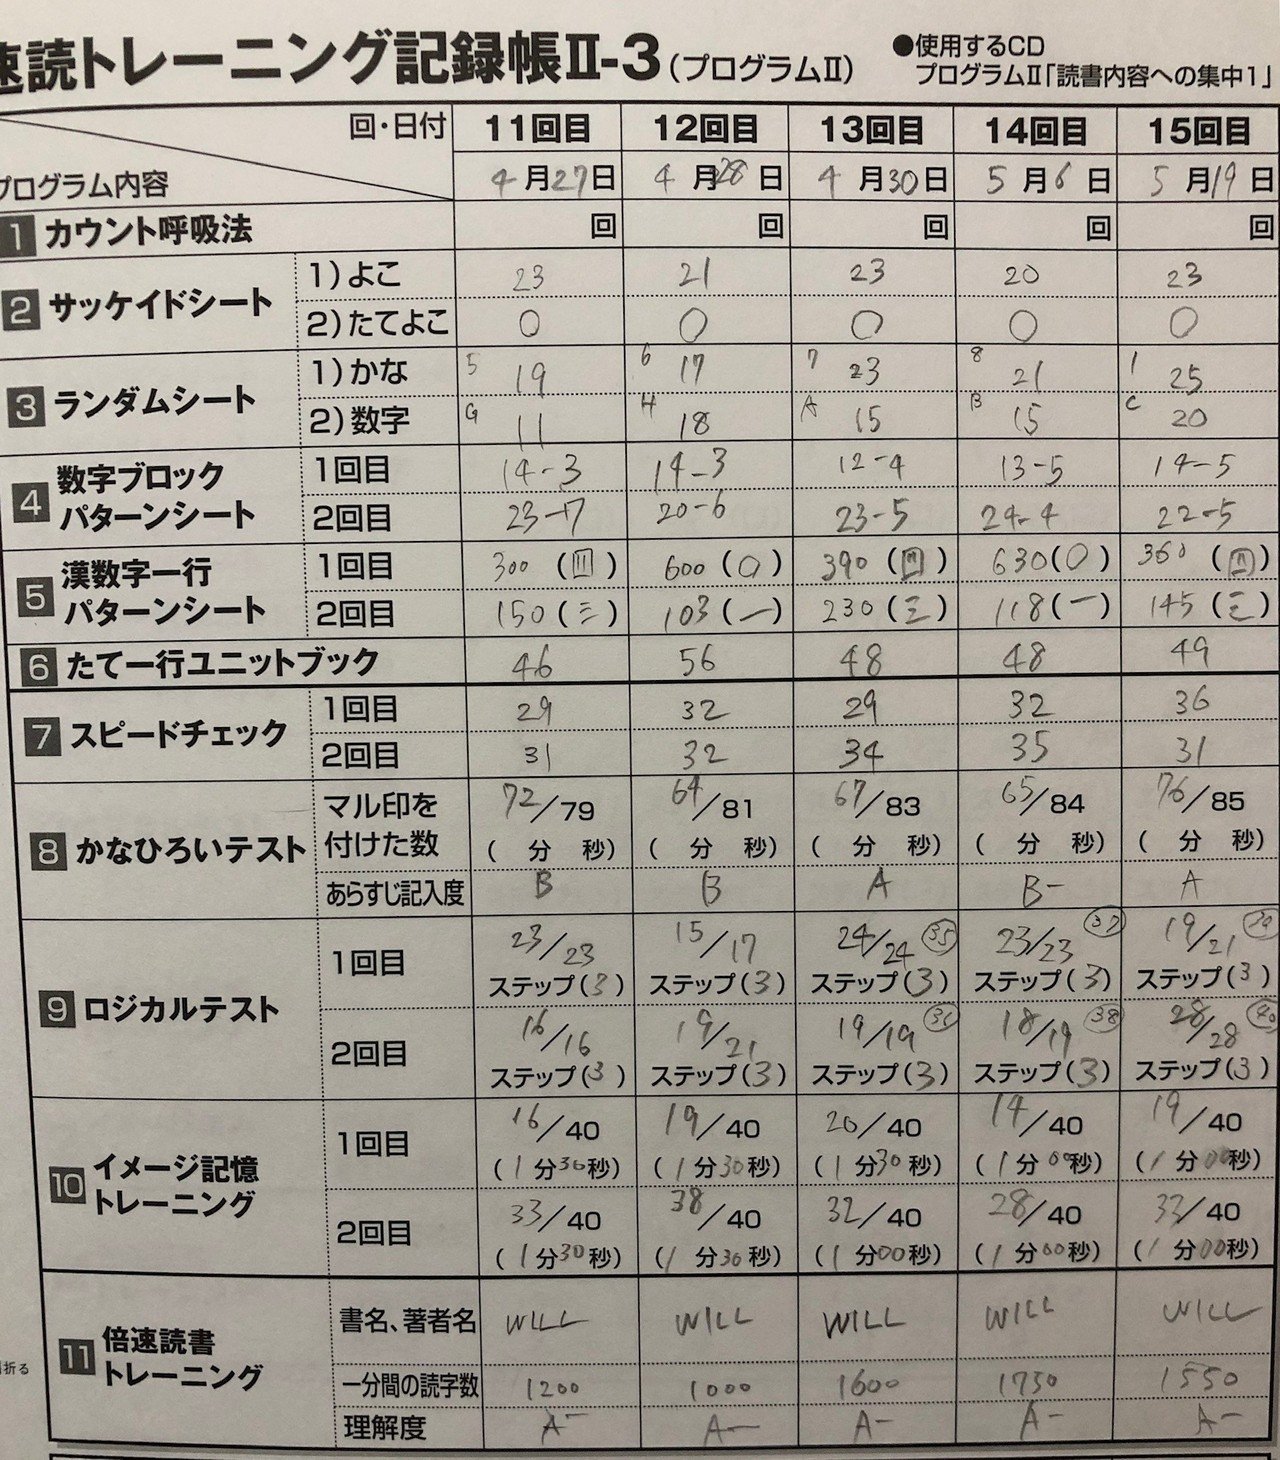 速読トレーニング記録帳Ⅱ-3(プログラムⅡ)
●使用するCD
プログラムⅡ「読書内容への集中1」
回・日付 11回目 12回目 13回目 14回目 15回目
プログラム内容 4月27日 4月28日 4月30日 5月6日 5月19日
1 カウント呼吸法 回 回 回 回 回
2 サッケイドシート 1)よこ 23 21 23 20 23
2)たてよこ 0 0 0 0 0
3 ランダムシート 1)かな 5 19 6 17 7 23 8 21 1 25
2)数字 G 11 H 18 A 15 B 15 C 20
4 数字ブロックパターンシート 1回目 14-3 14-3 12-4 13-5 14-5
2回目 23-17 20-6 23-5 24-4 22-5
5 漢数字一行パターンシート 1回目 300(四) 600(〇) 390(四) 630(〇) 360(四)
2回目 150(三) 103(一) 230(三) 118(一) 145(三)
6 たて一行ユニットブック 46 56 48 48 49
7 スピードチェック 1回目 29 32 29 32 36
2回目 31 32 34 35 31
8 かなひろいテスト マル印を付けた数 72/79 64/81 67/83 65/84 76/85
(分 秒) (分 秒) (分 秒) (分 秒) (分 秒)
あらすじ記入度 B B A B- A
9 ロジカルテスト 1回目 23/23 15/17 24/24 35 23/23 37 19/21
ステップ(3) ステップ(3) ステップ(3) ステップ(3) ステップ(3)
2回目 16/16 19/21 19/19 36 18/19 38 28/28 40
ステップ(3) ステップ(3) ステップ(3) ステップ(3) ステップ(3)
10 イメージ記憶トレーニング 1回目 16/40 19/40 20/40 14/40 19/40
(1分30秒) (1分30秒) (1分30秒) (1分00秒) (1分00秒)
2回目 33/40 38/40 32/40 28/40 33/40
(1分30秒) (1分30秒) (1分00秒) (1分00秒) (1分00秒)
11 倍速読書トレーニング 書名、著者名 WILL WILL WILL WILL WILL
一分間の読字数 1200 1000 1600 1750 1550
理解度 A- A- A- A- A-
折る